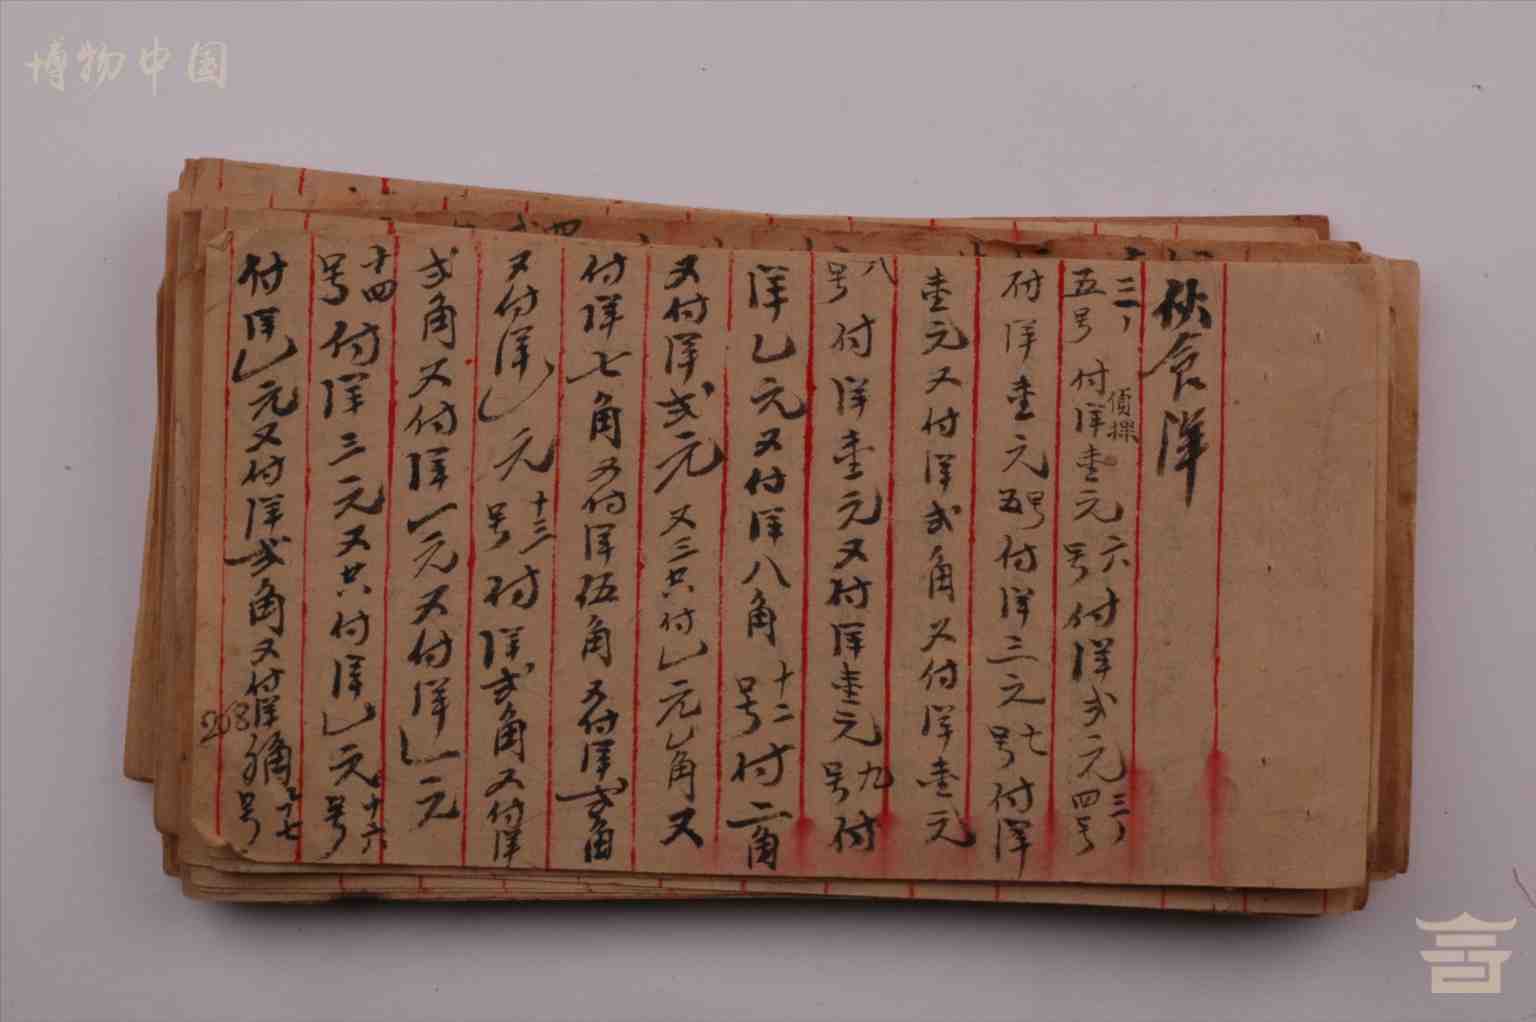 博物中国
伙食洋
三,五号付洋壹元六号付洋弍元三,四号
偵探
付洋壹元五号付洋三元七号付洋
壹元又付洋弍角又付洋壹元
八号付洋壹元又付洋壹元九号付
洋乙元又付洋八角十二号付二角
又付洋弍元又三共付乚元乚角又
付洋七角又付洋伍角又付洋弍角
又付洋乚元十三号付洋弍角又付洋
弍角又付洋一元又付洋一元
十四号付洋三元又共付洋乚元十六号
付洋乚元又付洋弍角又付洋角十七号
208